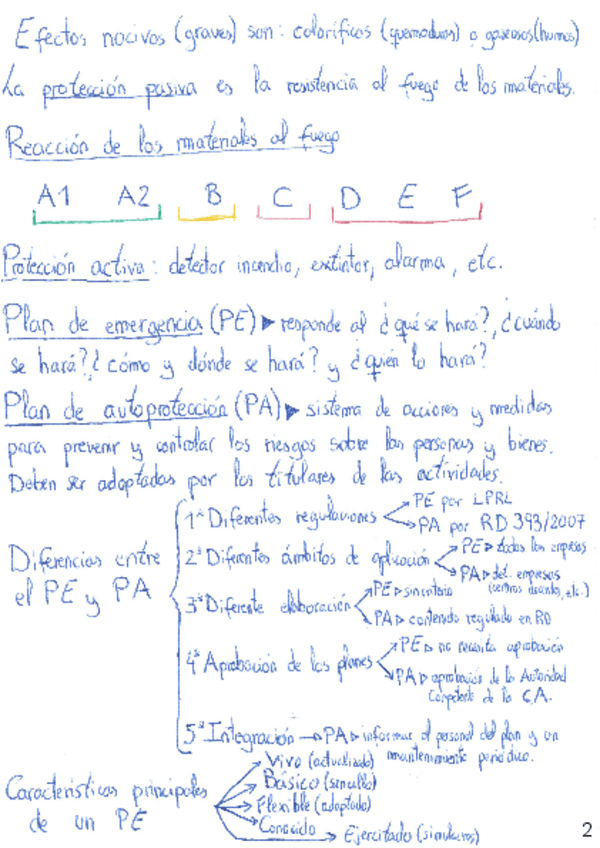 Efectos nocivos (graves) son: caloríficos (quemaduras) o gaseosos (humos)
La protección pasiva es la resistencia al fuego de los materiales.
Reacción de los materiales al fuego
A1 A2 B C D E F
Protección activa: detector incendio, extintor, alarma, etc.
Plan de emergencia (PE) ▶ responde al ¿qué se hará?, ¿cuándo
se hará? ¿cómo y dónde se hará? y ¿quién lo hará?
Plan de autoprotección (PA) ▶ sistema de acciones y medidas
para prevenir y controlar los riesgos sobre las personas y bienes.
Deben ser adoptadas por los titulares de las actividades.
Diferencias entre
el PE y PA
1ª Diferentes regulaciones
PE por LPRL
PA por RD 393/2007
2ª Diferentes ámbitos de aplicación
PE ▶ todas las empresas
PA ▶ det. empresas
(centros docentes, etc.)
3ª Diferente elaboración
PE ▶ sin criterio
PA ▶ contenido regulado en RD
4ª Aprobación de los planes
PE ▶ no necesita aprobación
PA ▶ aprobación de la Autoridad
Competente de la C.A.
5ª Integración → PA ▶ informar al personal del plan y un
mantenimiento periódico.
Características principales
de un PE
Vivo (actualizado)
Básico (sencillo)
Flexible (adaptado)
Conocido
Ejercitado (simulacros)
2